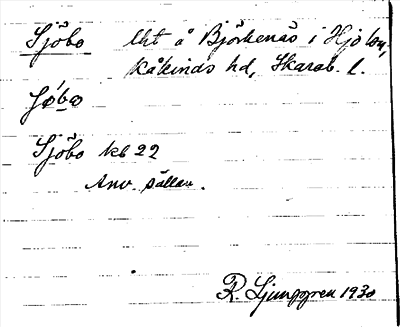 Sjöbo lht å Björkenäs i Hjo ln,
Kåkinds hd, Skarab. l.
Sjöbo kb 22
Anv. sällan.
R. Ljunggren 1930